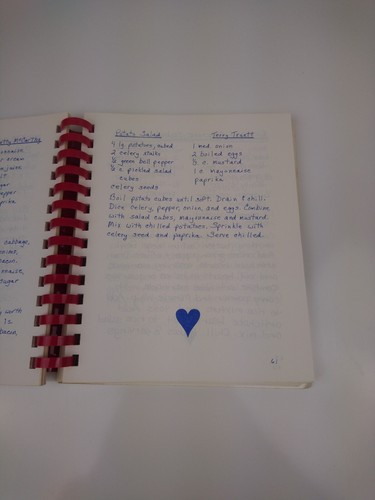 Potato Salad
4 lg potatoes, cubed
2 celery stalks
½ green bell pepper
½ c. pickled salad
cubes
celery seeds
1 med onion
2 boiled eggs
½ c. mustard
1 c. mayonnaise
paprika
Boil potato cubes until soft. Drain & chill.
Dice celery, pepper, onion, and eggs. Combine
with salad cubes, mayonnaise and mustard.
Mix with chilled potatoes. Sprinkle with
celery seed and paprika. Serve chilled.
61
cabbage,
sugar